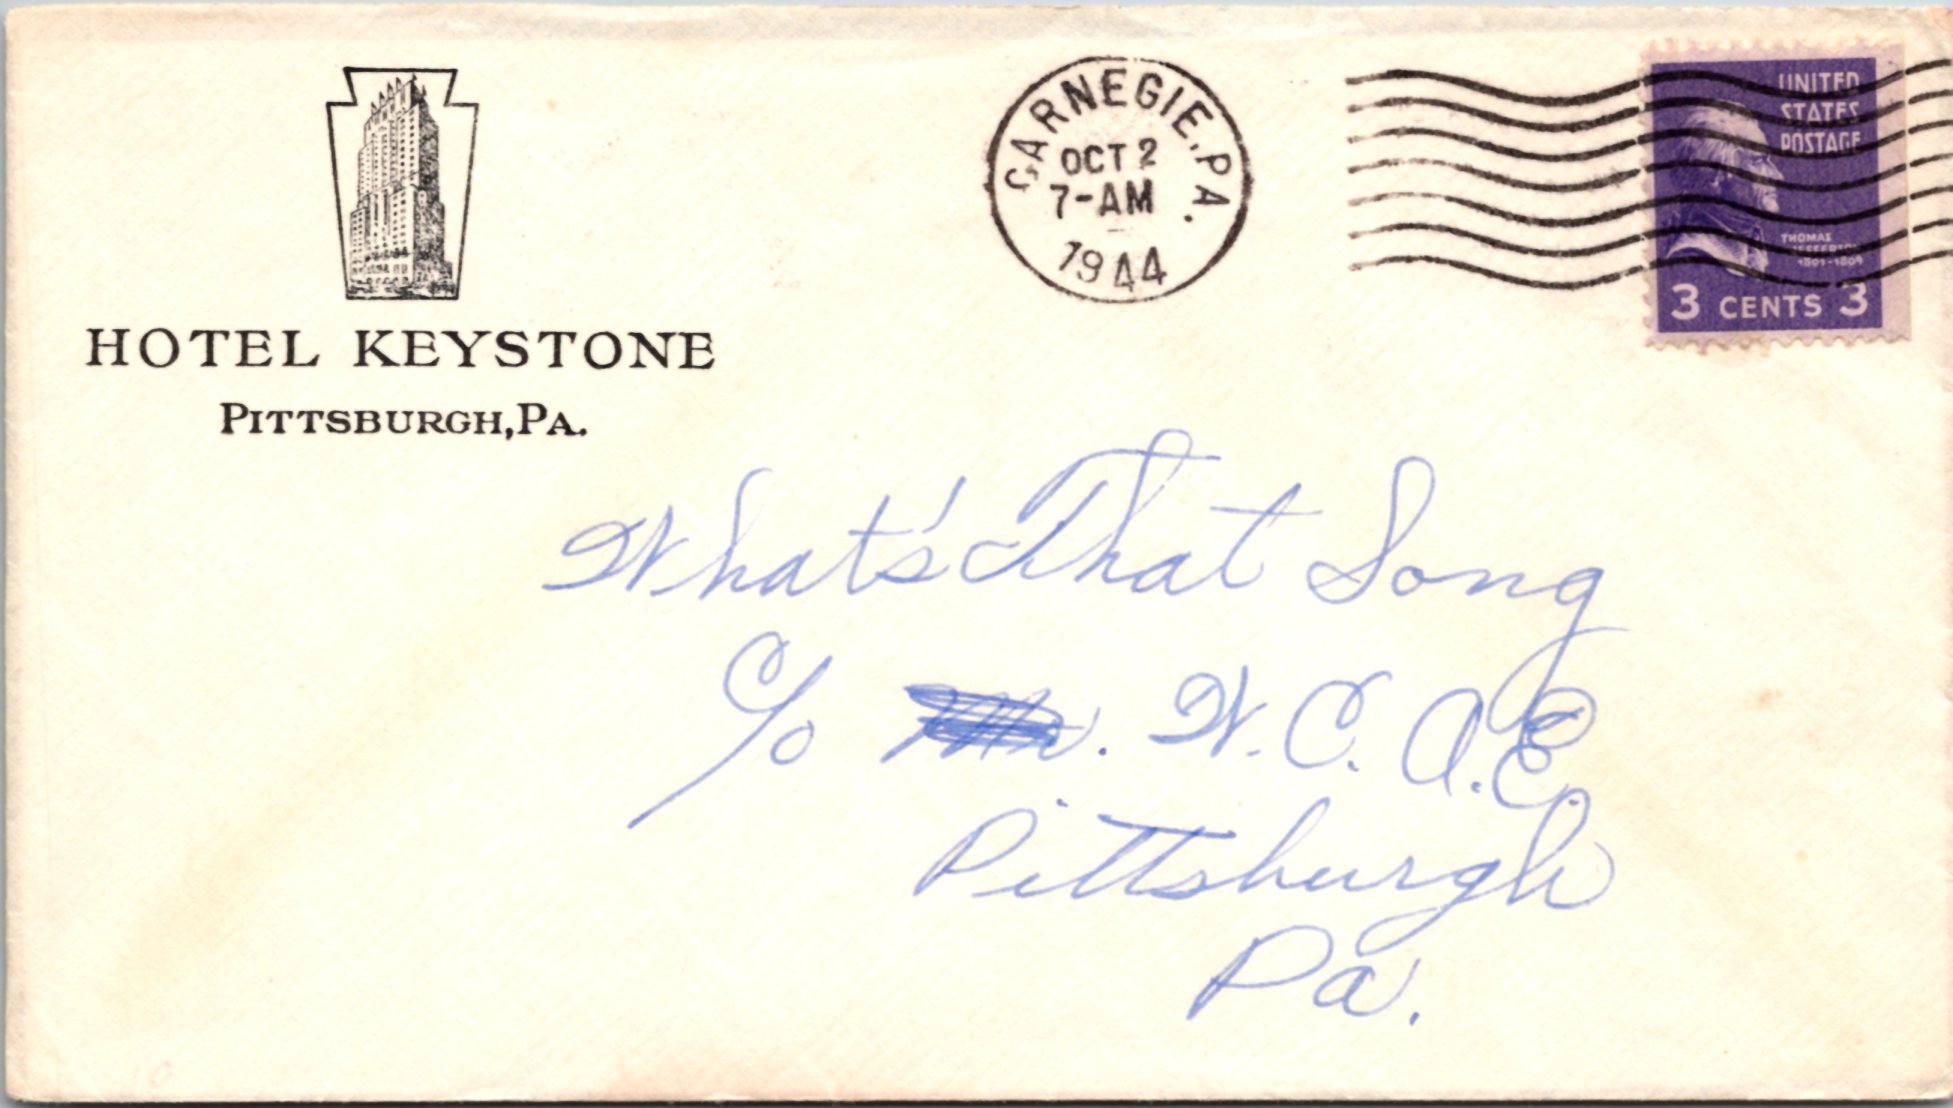 HOTEL KEYSTONE
PITTSBURGH, PA.
CARNEGIE, PA.
OCT 2
7-AM
1944
UNITED
STATES
POSTAGE
THOMAS
JEFFERSON
1801-1809
3 CENTS 3
What's That Song
c/o W.C.A.E.
Pittsburgh
Pa.